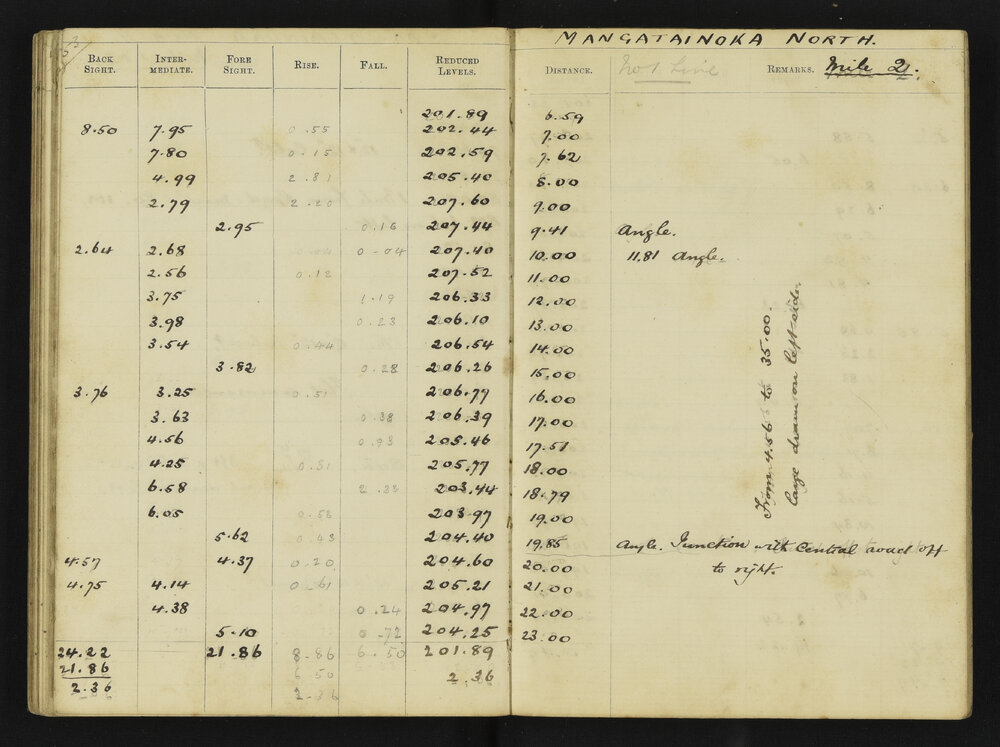 MANGATAINOKA NORTH.
BACK SIGHT. INTER-MEDIATE. FORE SIGHT. RISE. FALL. REDUCED LEVELS. DISTANCE. No 1 Line REMARKS. Mile 21.
201.89 6.59
8.50 7.95 0.55 202.44 7.00
7.80 0.15 202.59 7.62
4.99 2.81 205.40 8.00
2.79 2.20 207.60 9.00
2.95 0.16 207.44 9.41 Angle.
2.64 2.68 0.04 0-04 207.40 10.00 11.81 Angle.
2.56 0.12 207.52 11.00
3.75 1.19 206.33 12.00
3.98 0.23 206.10 13.00
3.54 0.44 206.54 14.00
3.82 0.28 206.26 15.00
3.76 3.25 0.51 206.77 16.00
3.63 0.38 206.39 17.00
4.56 0.93 205.46 17.51
4.25 0.31 205.77 18.00
6.58 2.33 203.44 18.79
6.05 0.53 203.97 19.00
5.62 0.43 204.40 19.85 Angle. Junction with Central road off
4.57 4.37 0.20 204.60 20.00 to right.
4.75 4.14 0.61 205.21 21.00
4.38 0.24 204.97 22.00
5.10 0.72 204.25 23.00
24.22 21.86 8.86 6.50 201.89
21.86 6.50 2.36
2.36 2.36
From 4.56 to 35.00.
large drain on left side.